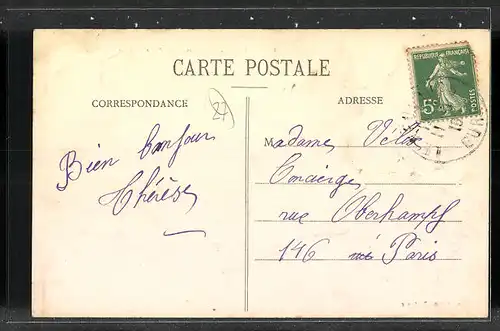 CARTE POSTALE
CORRESPONDANCE
ADRESSE
27
REPUBLIQUE FRANÇAISE
5c
POSTES
Bien bonjour
Thérèse
Madame
Concierge
rue Oberkampf
146 Paris